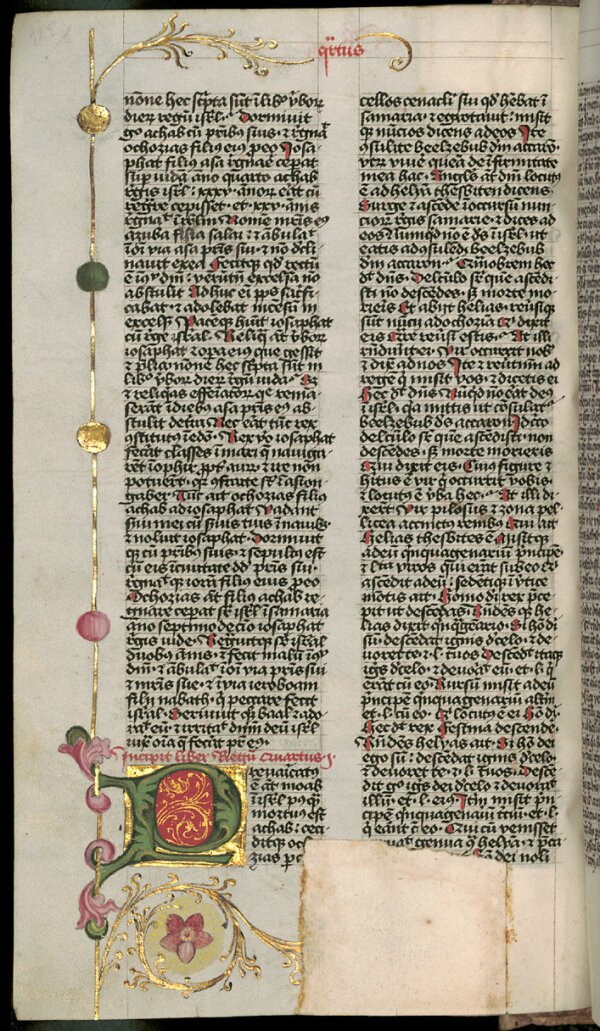 qrtus
none hec scripta sunt i libro vbor
dier regu isrl Dormiuit
go achab cu pribus suis et regna
ochozias filius eius p eo Iosa
phat filius asa regnare ceperat
sup iudam ano quarto achab
regis isrl xxxv annor erat cu
regnare cepisset et xxv annis
regnauit Nomen mris
azuba filia salai et abulauit
i oi via asa pris sui et no decli
nauit ex ea fecitque qd rectu
e dni verutn excelsa no
abstulit Adhuc ei pps sacrifi
cabat et adolebat incesu in
excelsis Pacemque huit iosaphat
cu rege isrl Reliqua at vbor
iosaphat et opa eius que gessit
et prelia none hec scripta sunt in
libro vbor dier regu iuda
et reliquias effeminator que reman
serant i diebus asa pris ei ab
stulit de tra Nec erat tunc rex
constitutus i edom Rex vo iosaphat
fecerat classes i mari que nauiga
rent i ophir ppt auru et ire non
potuerut quia confracte sunt i asion
gaber Tunc ait ochozias filius
achab ad iosaphat Vadant
serui mei cu seruis tuis i nauibus
et noluit iosaphat Dormiuit
que cu pribus suis et sepultus est
cu eis i ciuitate dd pris sui
regnauitque ioram filius eius p eo
Ochozias at filius achab re
gnare ceperat sup isrl i samaria
ano septimo decio iosaphat
regis iude Regnauitque sup isrl
duobus annis et fecit malu i
dni et abulauit i via pris sui
et mris sue et i via ieroboam
filij nabath qui peccare fecit
isrl Seruiuit que baal et ado
rauit eu et irritauit dnm deu isrl
iuxta oia que fecerat pr ei
Incipit liber Regu Quartus
Preuaricatus
e at moab
i isrl postqua
mortuus est
achab ceci
ditque ocho
zias p
cellos cenaculi sui qd habebat i
samaria et egrotauit misit
que nucios dicens ad eos Ite
consulite beelzebub dm accaron
vtr viue quea de i firmitate
mea hac Anglus at dni locutus
e ad helyam thesbiten dicens
Surge et ascede i occursu nun
cior regis samarie et dices ad
eos Nunquid no e ds i isrl ut
eatis ad consuledu beelzebub
dm accaron Quaobrem hec
dt dns De lectulo sup que ascedi
sti no descedes sed morte mo
rieris Et abijt helias reuersique
sunt nuncij ad ochozia Qui dixit
eis Quare reuersi estis At illi
rnderunt ei Vir occurrit nobis
et dix ad nos Ite et reutimini ad
rege qui misit vos et dicetis ei
hec dt dns Nuquid no erat deus
i isrl quia mittis ut consulatur
beelzebub ds accaron Idcirco
de lectulo sup que ascedisti non
descedes sed morte morieris
Qui dixit eis Cuius figure et
hitus e vir qui occurrit vobis
et locutus e vba hec At illi di
xerut Vir pilosus et zona pel
licea accinctus renibus Qui ait
Helias thesbites e Misitque
ad eu quinquagenariu principe
et l viros qui erant sub eo
ascedit ad eu sedetique i vertice
montis ait Homo dei rex prece
pit ut descedas Rndensque he
lias dixit quinquagenario Si homo dei
su descedat ignis de celo et de
uoret te et l tuos Descedit itaque
ignis de celo et deuorauit eu et l qui
erant cu eo Rursu misit ad eu
principe quinquagenariu alterum
et l cu eo Qui locutus e ei Homo dei
hec dt rex Festina descende
Rndens helyas ait Si homo dei
ego su descedat ignis de celo
et deuoret te et l tuos Desce
dit go ignis dei de celo et deuorauit
illu et l eius Iteru misit prin
cipe quinquagenariu terciu et l
qui erant cu eo Qui cu venisset
curuauit genua contra helya et preca
dei noli